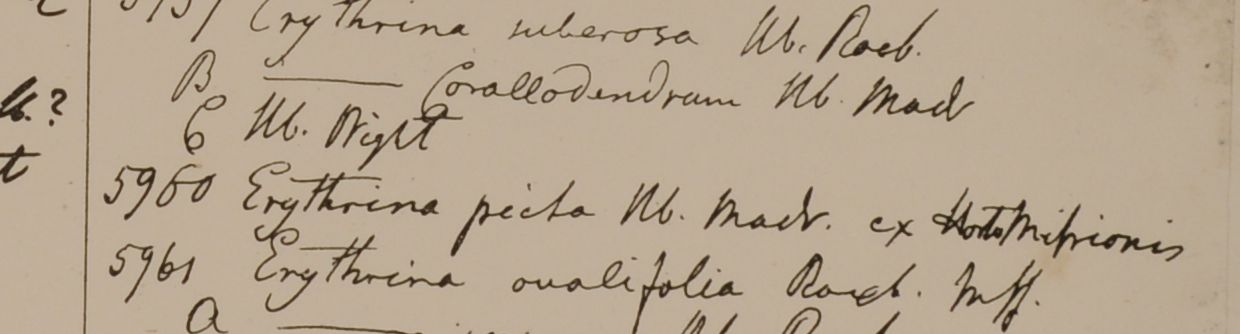 Erythrina suberosa Hb. Roxb.
B ——— Corallodendrum Hb. Madr
k.?
C Hb. Wight
t
5960 Erythrina picta Hb. Madr. ex Horto Missionis
5961 Erythrina ovalifolia Roxb. Mss.
a ———